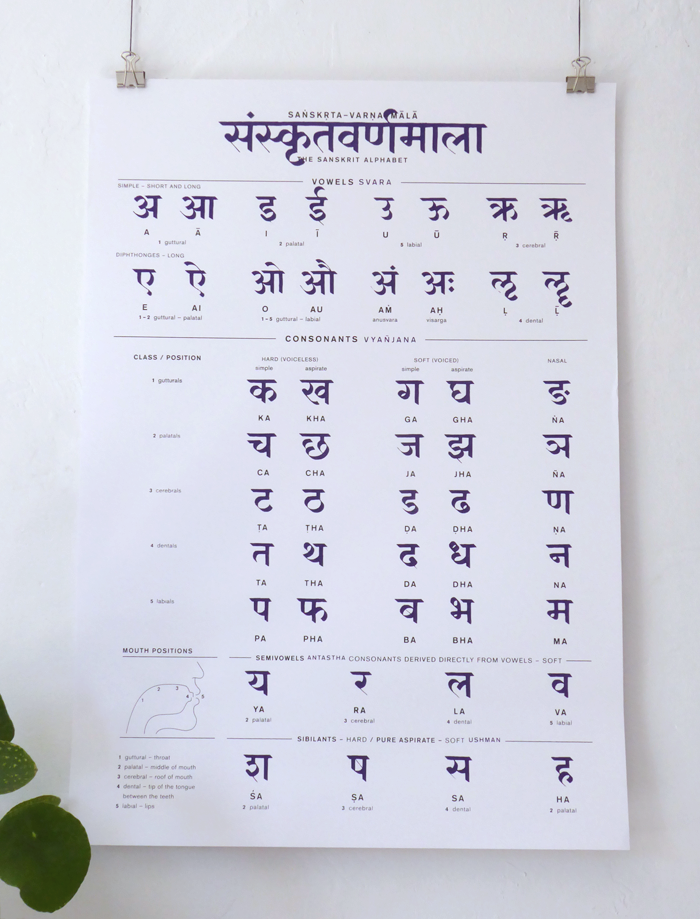 SAṄSKṚTA–VARṆA MĀLĀ
संस्कृतवर्णमाला
THE SANSKRIT ALPHABET
VOWELS SVARA
SIMPLE – SHORT AND LONG
अ आ इ ई उ ऊ ऋ ॠ
A Ā I Ī U Ū Ṛ Ṝ
1 guttural 2 palatal 5 labial 3 cerebral
DIPHTHONGES – LONG
ए ऐ ओ औ अं अः ऌ ॡ
E AI O AU AṀ AḤ Ḷ Ḹ
1–2 guttural – palatal 1–5 guttural – labial anusvara visarga 4 dental
CONSONANTS VYAÑJANA
CLASS / POSITION HARD (VOICELESS) SOFT (VOICED) NASAL
simple aspirate simple aspirate
1 gutturals क ख ग घ ङ
KA KHA GA GHA ṄA
2 palatals च छ ज झ ञ
CA CHA JA JHA ÑA
3 cerebrals ट ठ ड ढ ण
ṬA ṬHA ḌA ḌHA ṆA
4 dentals त थ द ध न
TA THA DA DHA NA
5 labials प फ ब भ म
PA PHA BA BHA MA
MOUTH POSITIONS
1 2 3 4 5
1 guttural – throat
2 palatal – middle of mouth
3 cerebral – roof of mouth
4 dental – tip of the tongue
between the teeth
5 labial – lips
SEMIVOWELS ANTASTHA CONSONANTS DERIVED DIRECTLY FROM VOWELS – SOFT
य र ल व
YA RA LA VA
2 palatal 3 cerebral 4 dental 5 labial
SIBILANTS – HARD / PURE ASPIRATE – SOFT USHMAN
श ष स ह
ŚA ṢA SA HA
2 palatal 3 cerebral 4 dental 2 palatal